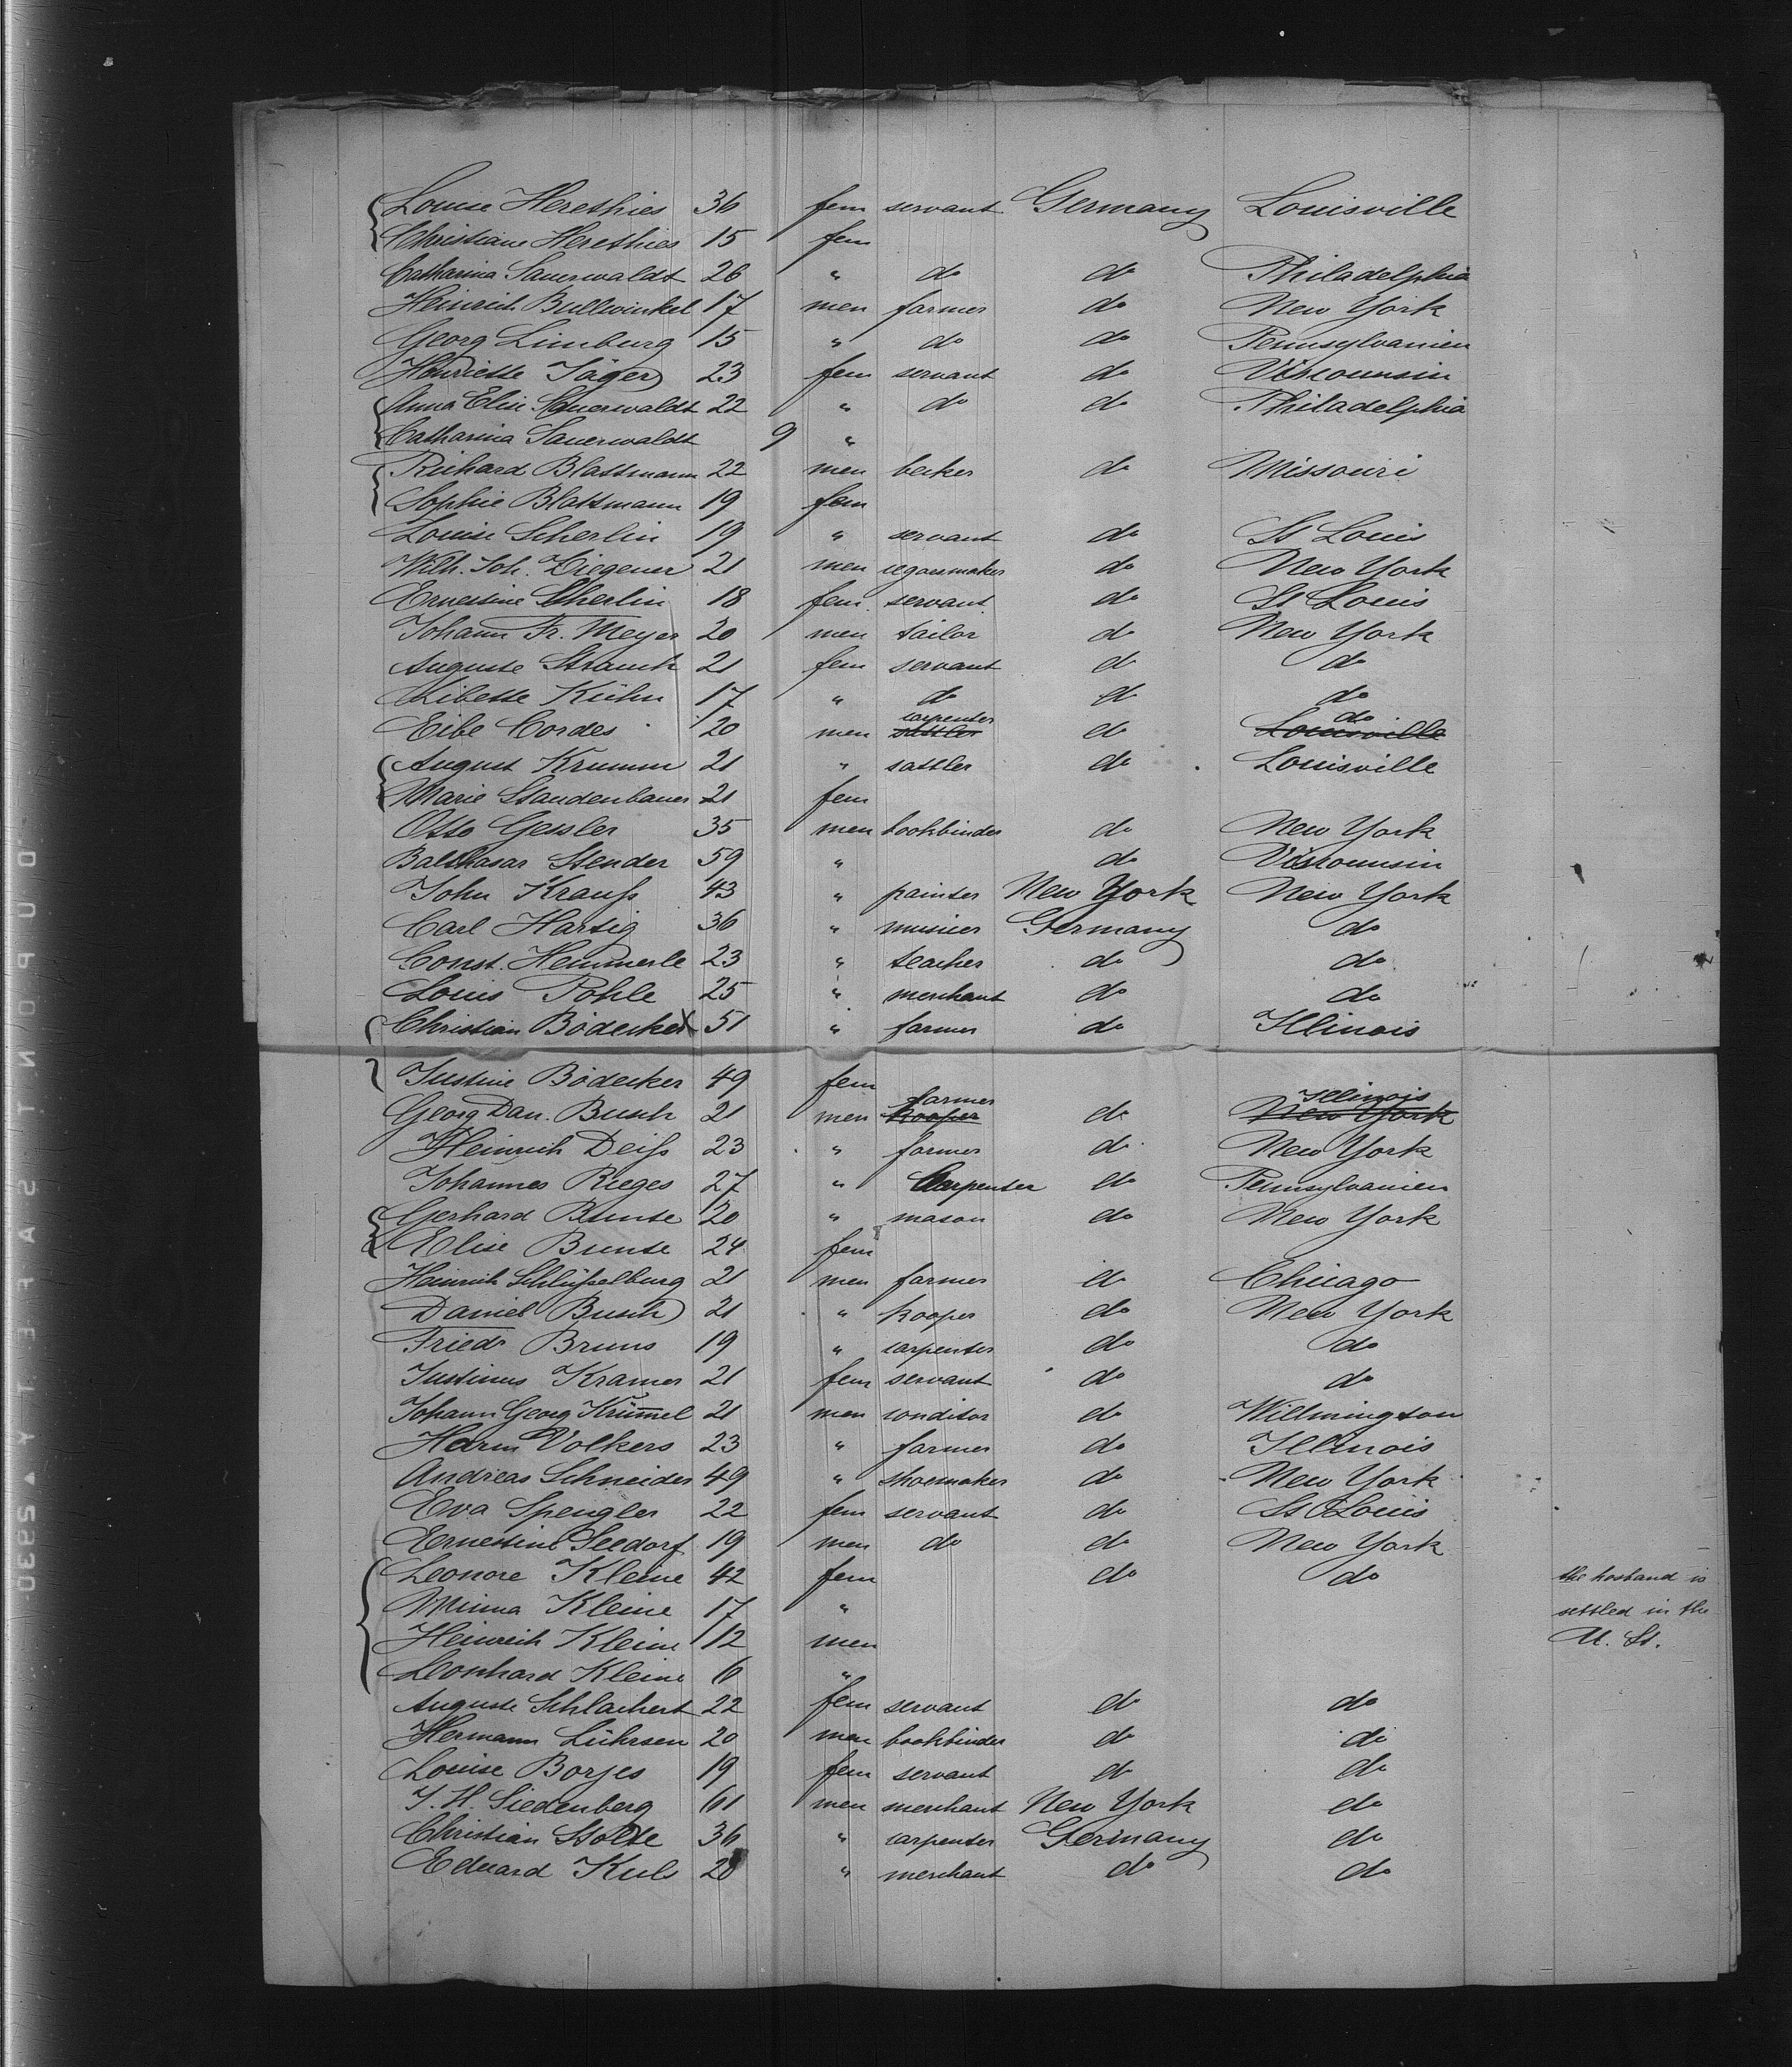 Louise Herethies 36 fem servant Germany Louisville
Christiane Herethies 15 fem
Catharina Sauerwaldt 26 " do do Philadelphia
Heinrich Bullwinkel 17 men farmer do New York
Georg Limburg 15 " do do Pennsylvanien
Henriette Jäger 23 fem servant do Visconnsin
Anna Elise Sauerwaldt 22 " do do Philadelphia
Catharina Sauerwaldt 9 "
Richard Blattmann 22 men becker do Missouri
Sophie Blattmann 19 fem
Louise Scherlin 19 " servant do St Louis
Wilh. Joh. Ziegener 21 men segarsmaker do New York
Ernestine Scherlin 18 fem. servant do St Louis
Johann Fr. Meyer 20 men tailor do New York
Auguste Strauch 21 fem servant do do
Libette Kühn 17 " do do do
Eibe Cordes 20 men sattler carpenter do Louisville do
August Krumm 21 " sattler do Louisville
Marie Staudenbauer 21 fem
Otto Gessler 35 men bookbinder do New York
Balthasar Stender 59 " do Visconnsin
John Krauß 43 " painter New York New York
Carl Hartig 36 " musicer Germany do
Const. Hemmerle 23 " teacher do do
Louis Pohle 25 " merchant do do
Christian Bödecker X 51 " farmer do Illinois
Justine Bödecker 49 fem
Georg Dan. Busch 21 men kooper farmer do New York Illinois
Heinrich Deiß 23 " farmer do New York
Johannes Rieges 27 " Carpenter do Pennsylvanien
Gerhard Bunte 20 " mason do New York
Elise Bunte 24 fem
Heinrich Schlüßelburg 21 men farmer do Chicago
Daniel Busch 21 " kooper do New York
Friedr Bruns 19 " carpenter do do
Justinus Kramer 21 fem servant do do
Johann Georg Krümel 21 men conditor do Willmington
Harm Volkers 23 " farmer do Illinois
Andreas Schneider 49 " shoemaker do New York
Eva Spengler 22 fem servant do St Louis
Ernestine Seedorf 19 men do do New York
Leonore Kleine 42 fem do do the hosband is
Minna Kleine 17 " settled in the
Heinrich Kleine 12 men U. St.
Leonhard Kleine 6 "
Auguste Schlachert 22 fem servant do do
Hermann Lührsen 20 men bookbinder do do
Louise Borjes 19 fem servant do do
J. H. Siedenberg 61 men merchant New York do
Christian Stolte 36 " carpenter Germany do
Eduard Kuls 20 " merchant do do